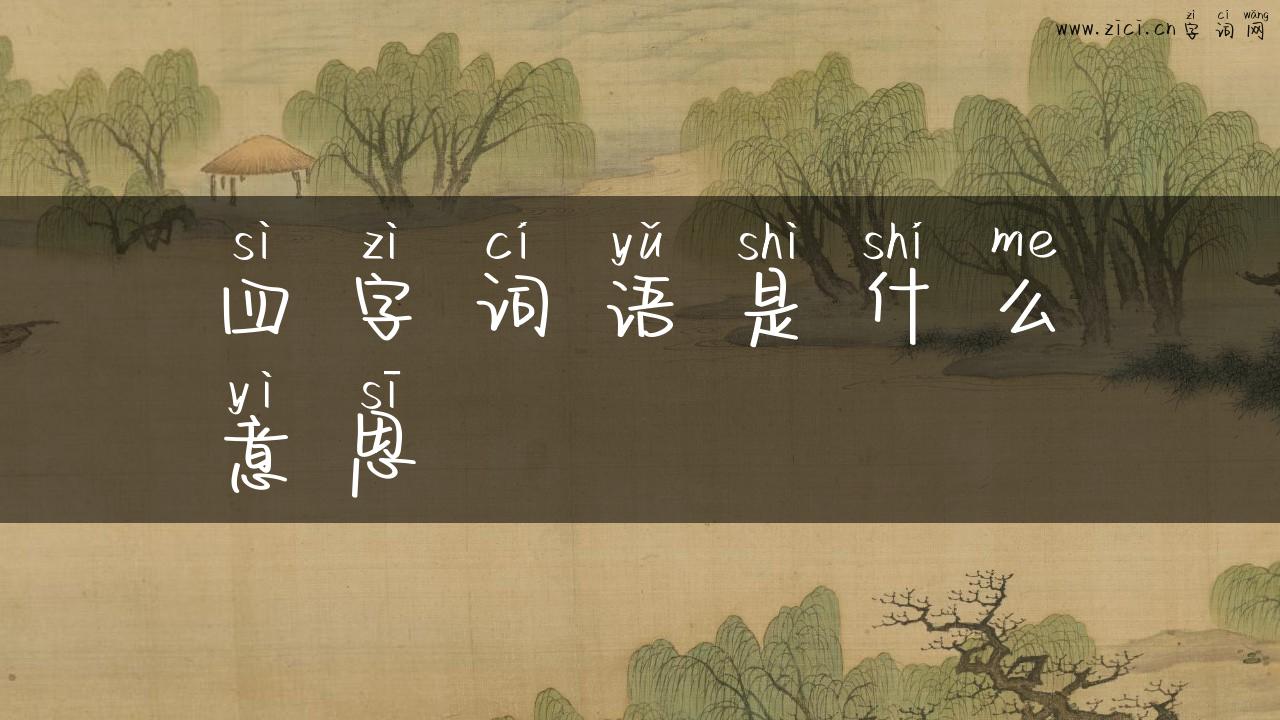 zì cí wǎng
www.zici.cn 字词网
sì zì cí yǔ shì shí me
四字词语是什么
yì sī
意思